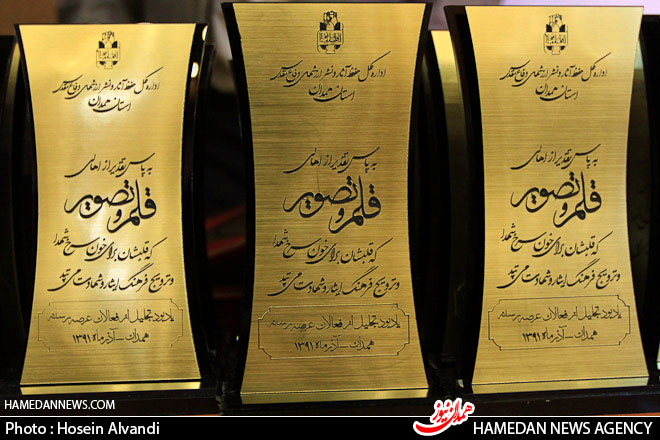 اداره کل حفظ آثار و نشر ارزشهای دفاع مقدس
استان همدان
به پاس تقدیر از اهالی
قلم و تصویر
که قلبشان برای خون سرخ شهدا
و ترویج فرهنگ ایثار و شهادت می تپد
یادبود تجلیل از فعالان عرصه رسانه
همدان - آذر ماه ۱۳۹۱
اداره کل حفظ آثار و نشر ارزشهای دفاع مقدس
استان همدان
به پاس تقدیر از اهالی
قلم و تصویر
که قلبشان برای خون سرخ شهدا
و ترویج فرهنگ ایثار و شهادت می تپد
یادبود تجلیل از فعالان عرصه رسانه
همدان - آذر ماه ۱۳۹۱
اداره کل حفظ آثار و نشر ارزشهای دفاع مقدس
استان همدان
به پاس تقدیر از اهالی
قلم و تصویر
که قلبشان برای خون سرخ شهدا
و ترویج فرهنگ ایثار و شهادت می تپد
یادبود تجلیل از فعالان عرصه رسانه
همدان - آذر ماه ۱۳۹۱
HAMEDANNEWS.COM
Photo : Hosein Alvandi
همدان نیوز
HAMEDAN NEWS AGENCY